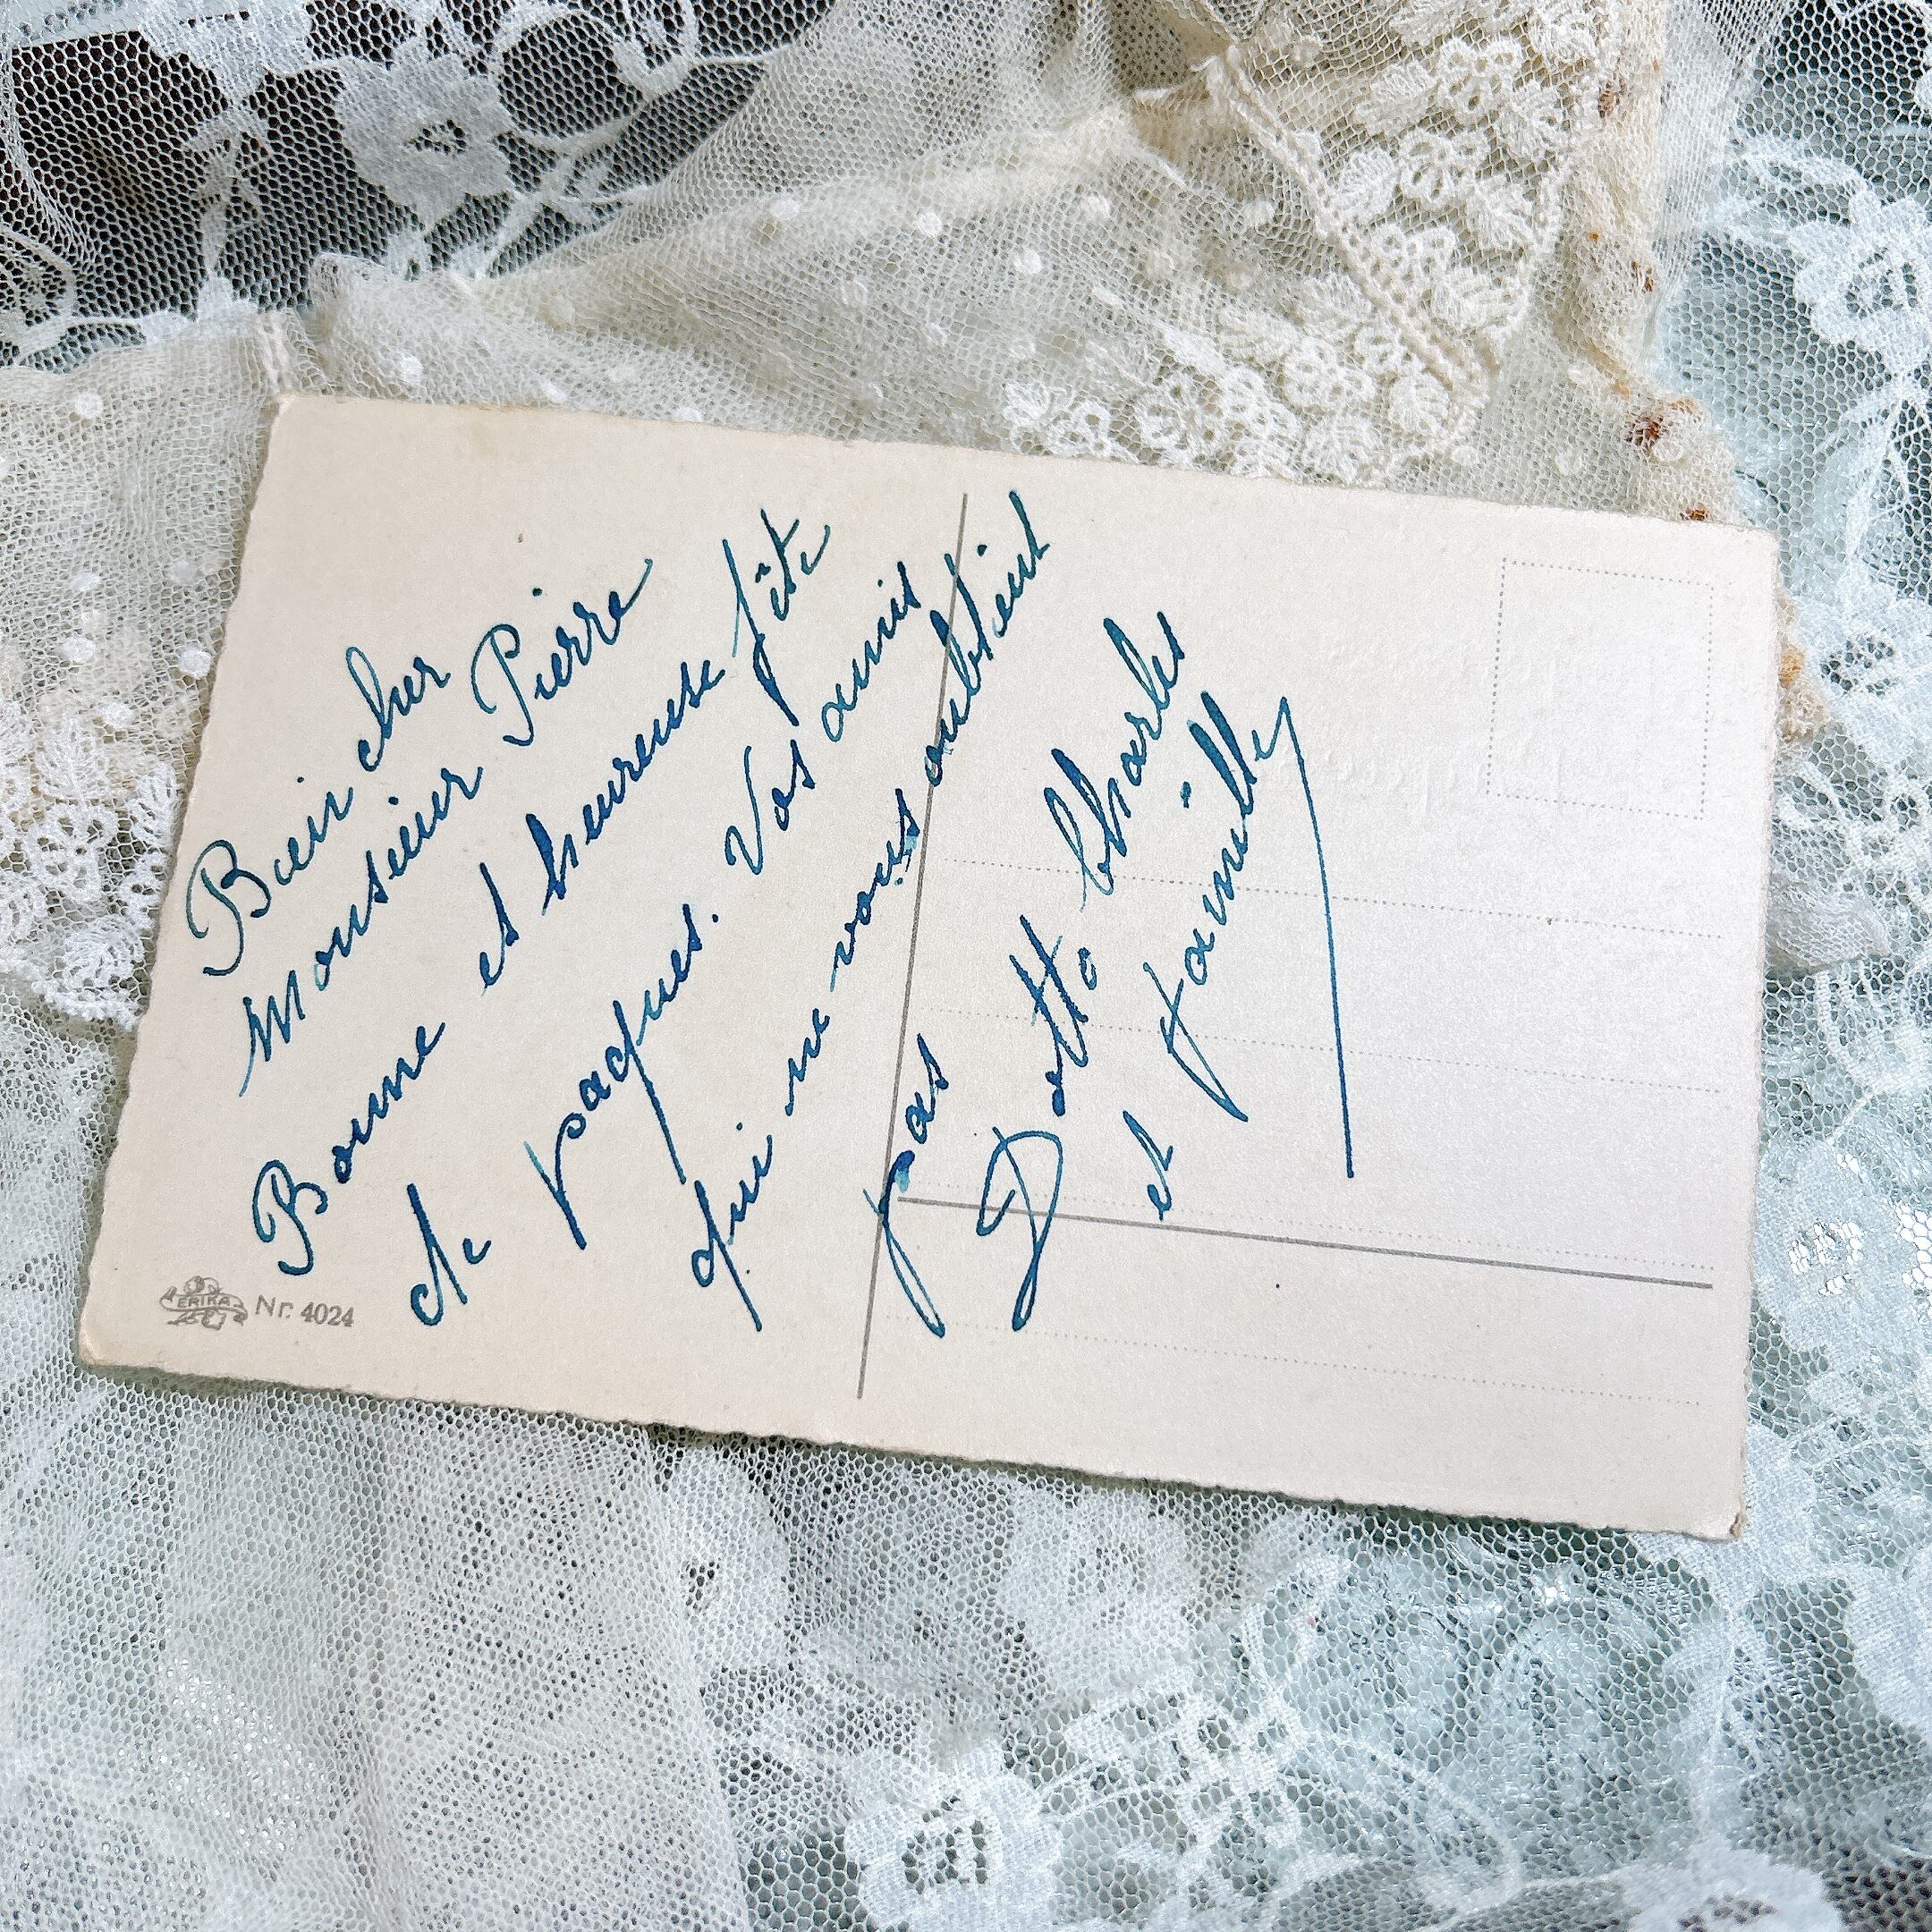 Bien cher
Monsieur Pierre
Bonne et heureuse fête
de pacques. Vos amis
qui ne vous oublient
pas
Dotto Charles
et famille
ERIKA
Nr. 4024